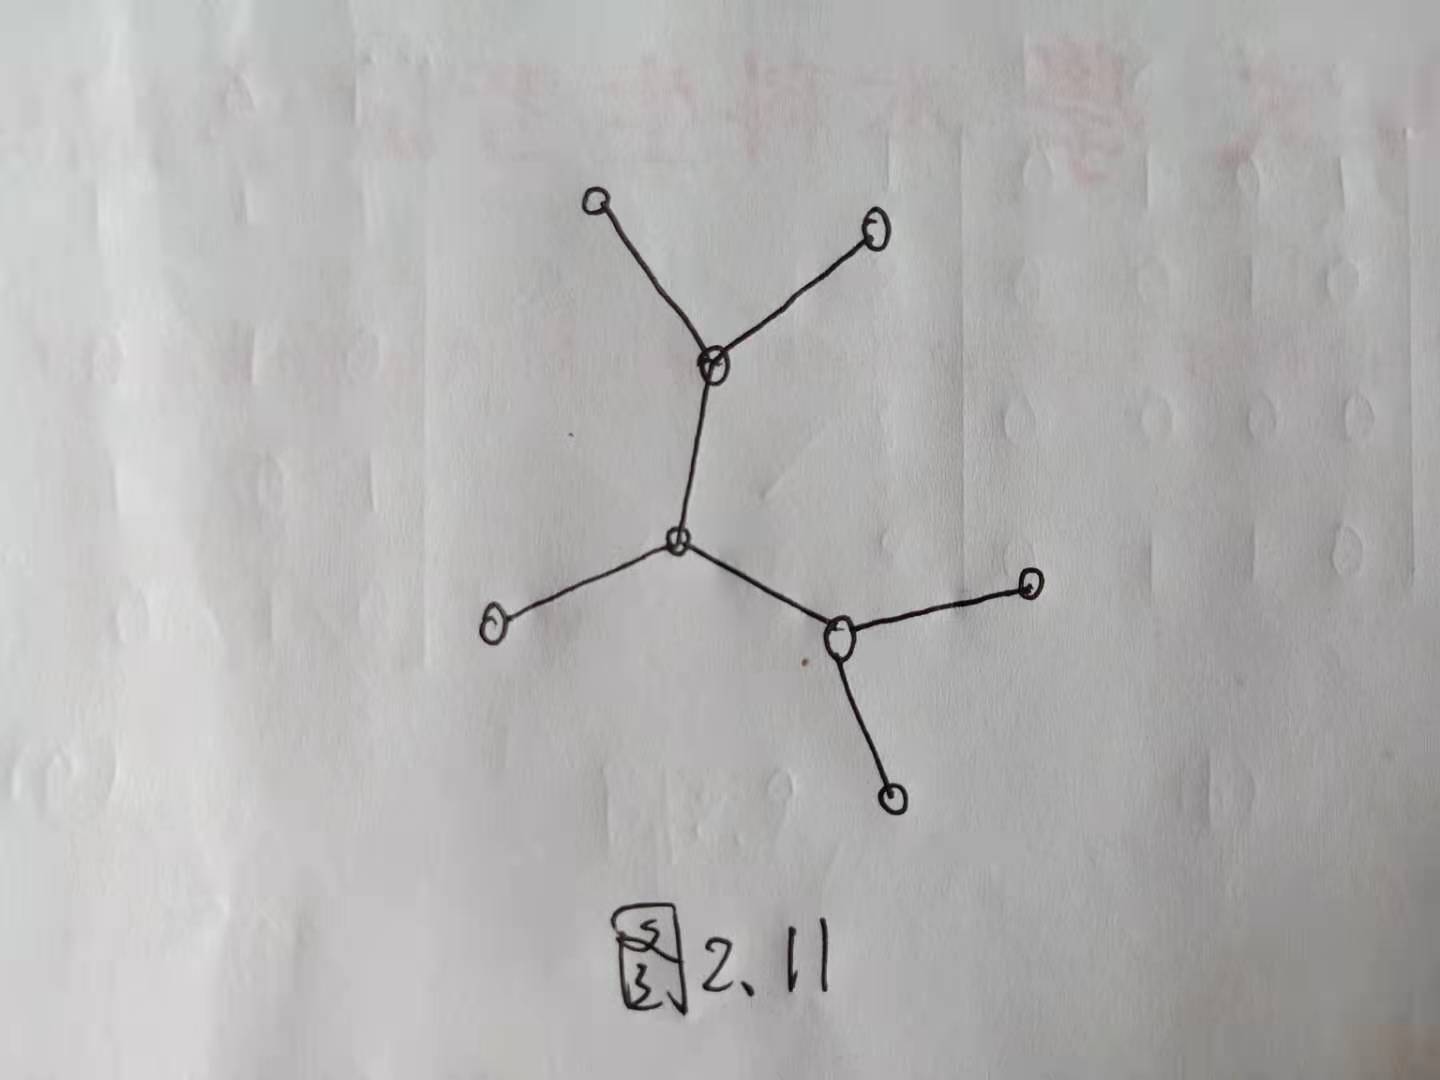 图2.11